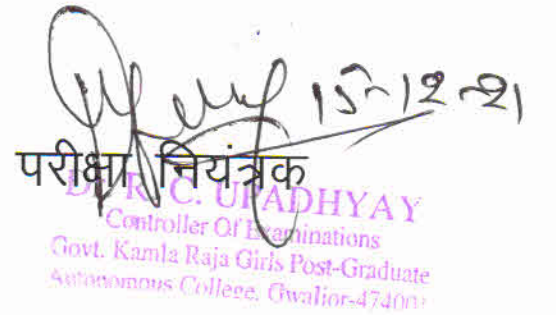 15-12-21
परीक्षा नियंत्रक
Dr. R. C. UPADHYAY
Controller Of Examinations
Govt. Kamla Raja Girls Post-Graduate
Autonomous College, Gwalior-474001